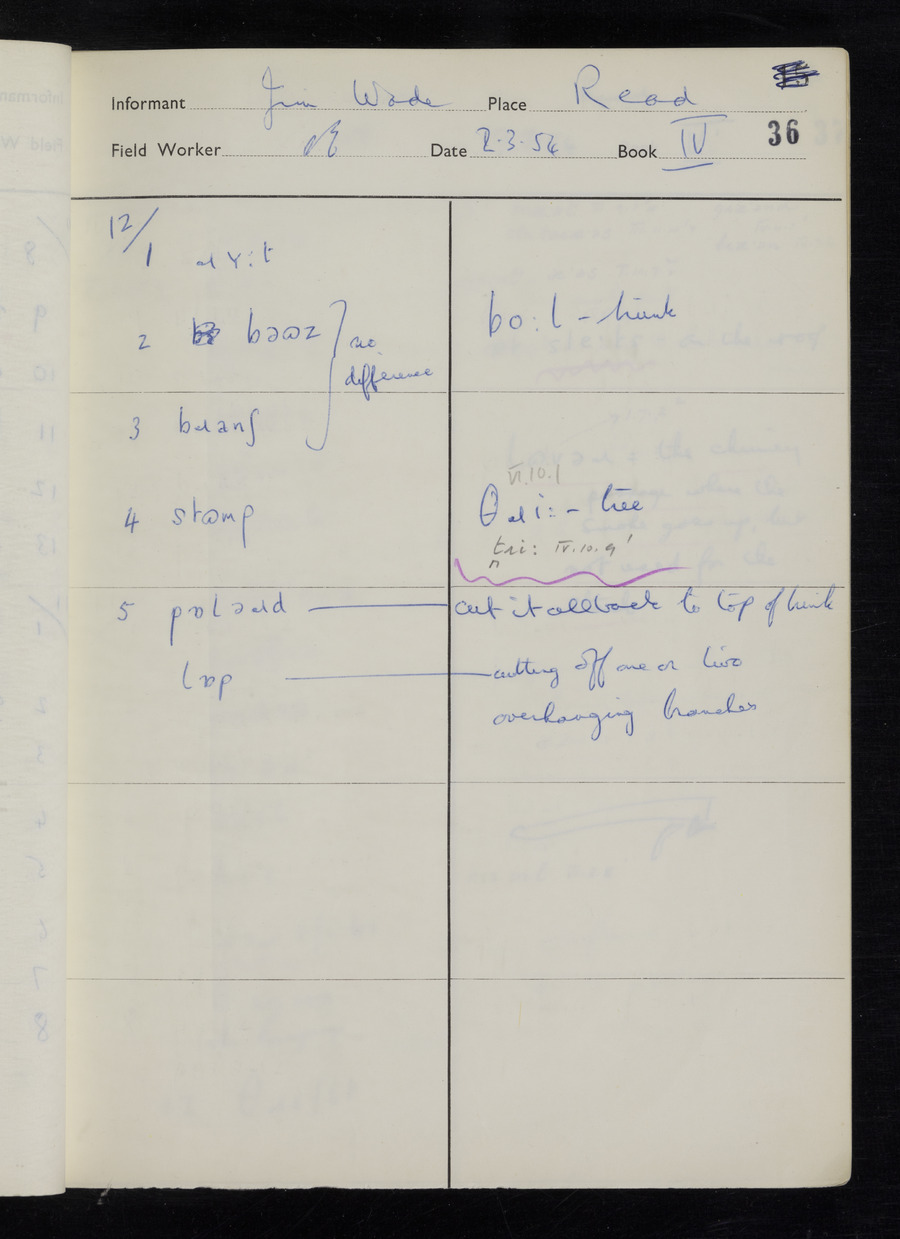 Informant Jim Wade Place Read
Field Worker Date 2.3.54 Book IV 36
12/
1
2 no bo:l - trunk
difference
3
VI.10.1
4 - tree
IV.10.9
5 cut it all back to top of trunk
lɒp cutting off one or two
overhanging branches